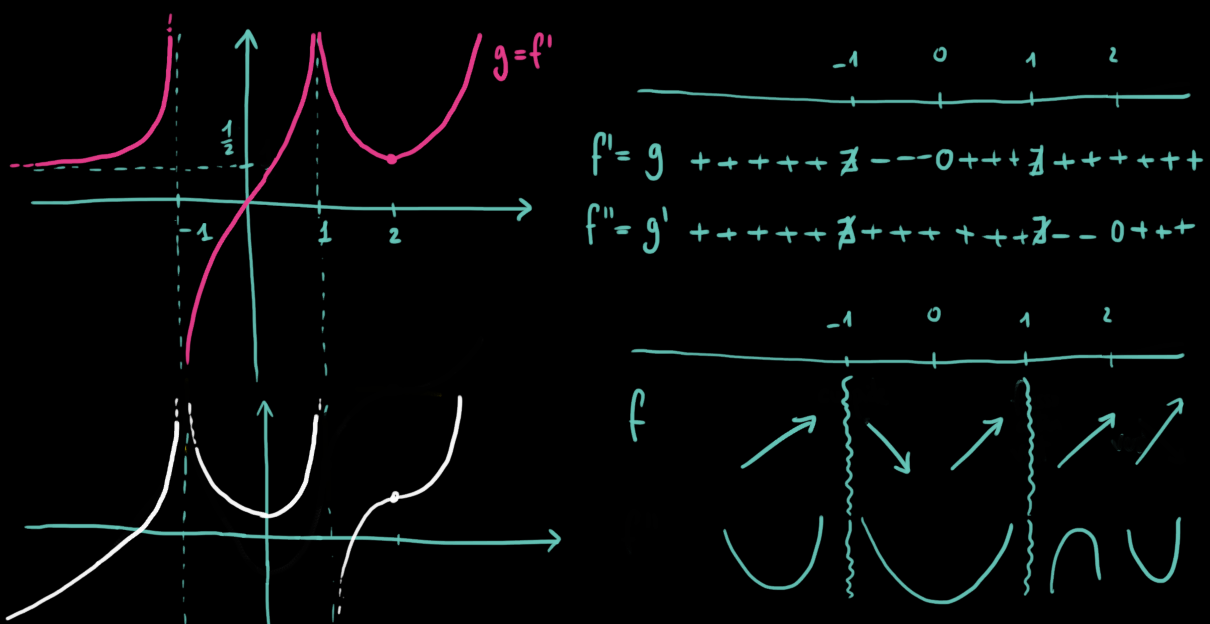 g=f'
1/2
-1 1 2
-1 0 1 2
f'= g +++++∄---0+++∄+++++++
f''= g' +++++∄++++++∄--0+++
-1 0 1 2
f